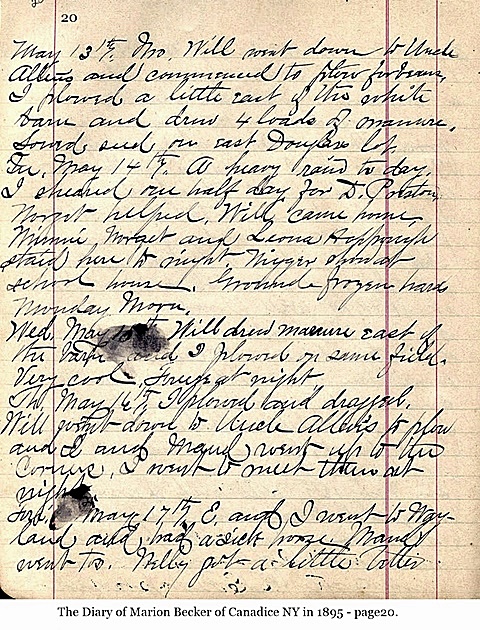 20
May 13th, Mo. Will went down to Uncle
Allens and commenced to plow for beans,
I plowed a little east of the white
barn and drew 4 loads of manure.
Sowed seed on east Douglass lot
Tu. May 14th. A heavy rain to day.
I sheared one half day for D. Preston
helped. Will came home
Minnie and Leona
staid here to night Nigger show at
school house. Ground frozen hard
Monday Morn.
Wed. May Will drew manure east of
the barn and I plowed on same field.
Very cool, at night
Th. May 16th, I plowed and dragged.
Will went down to Uncle Allens to plow
and I and Maud went up to the
Corners, I went to meet them at
night
May 17th, E. and I went to Way-
land and had a sick horse Maud
went to. Nelly got a little
The Diary of Marion Becker of Canadice NY in 1895 - page20.